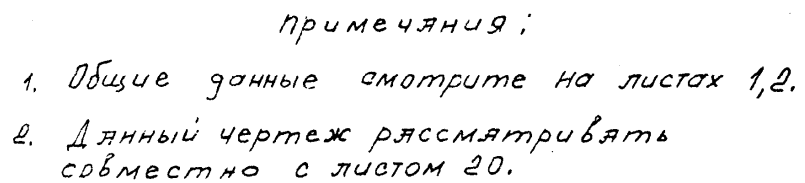 Примечания;
1. Общие данные смотрите на листах 1,2.
2. Данный чертеж рассматривать
совместно с листом 20.